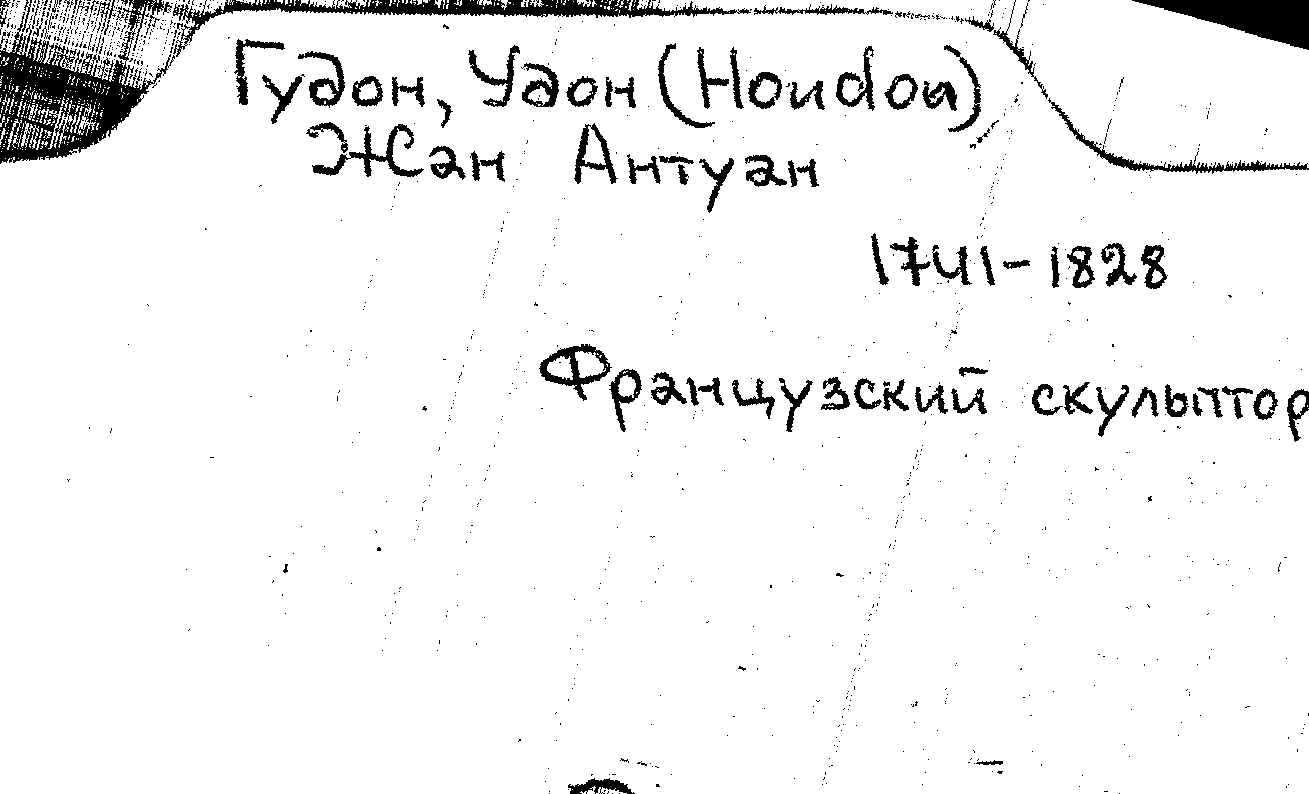 Гудон, Удон (Houdon)
Жан Антуан
1741-1828
Французский скульптор